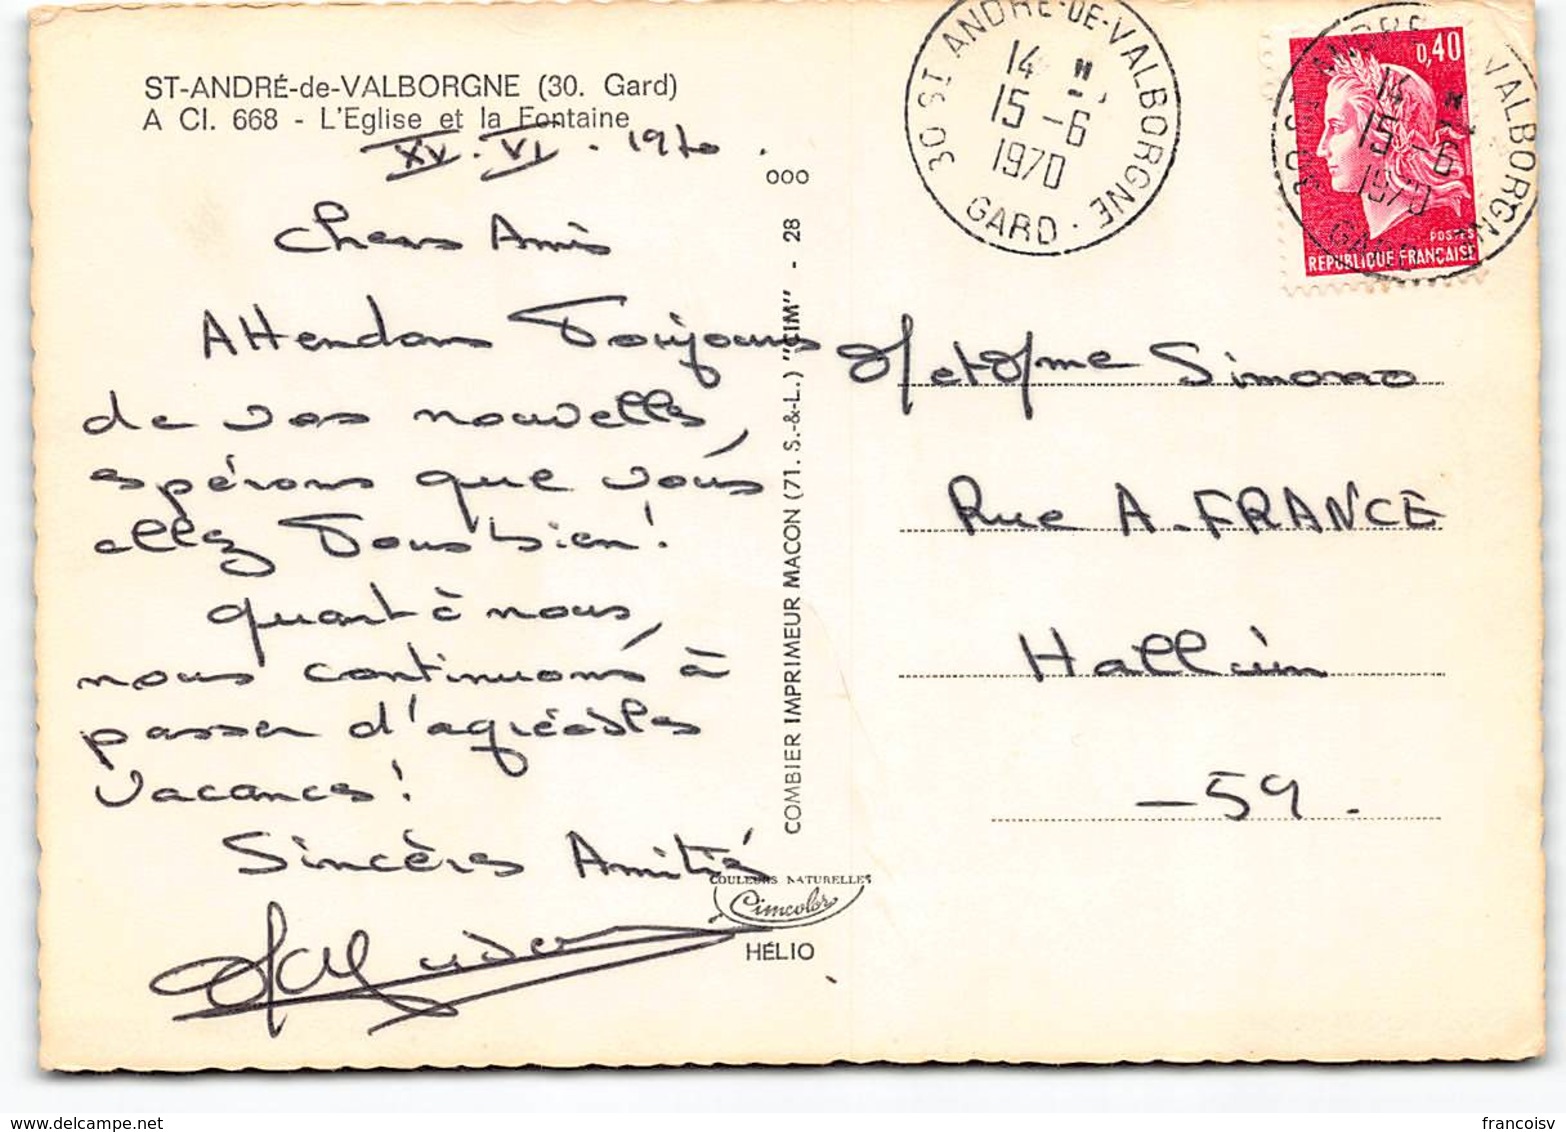 ST-ANDRÉ-de-VALBORGNE (30. Gard)
A Cl. 668 - L'Eglise et la Fontaine
XV. VI. 1970.
Chers Amis
Attendons Toujours
de vos nouvelles,
espérons que vous
allez Tous bien !
quant à nous,
nous continuons à
passer d'agréables
vacances !
Sincères Amitiés
COMBIER IMPRIMEUR MACON (71. S.-&-L.) "CIM" - 28
ooo
COULEURS NATURELLES
Cimcolor
HÉLIO
30 ST ANDRÉ-DE-VALBORGNE
14 H
15 - 6
1970
GARD
0,40
POSTES
REPUBLIQUE FRANÇAISE
30 ST ANDRE VALBORGNE
14 H
15 - 6
1970
GARD
M et Mme Simono
Rue A. FRANCE
Halluin
- 59.
francoisv